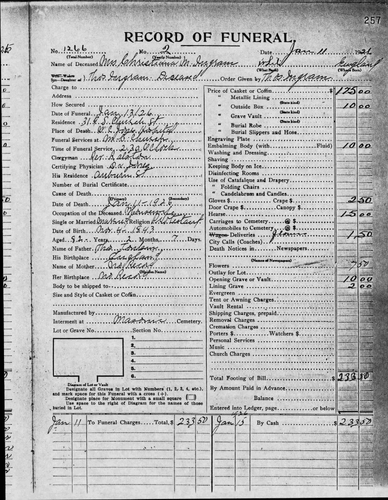 257
RECORD OF FUNERAL
No. 1266 No. 2 Date Jan 11 1926
(Total Number) (Yearly Number)
Name of Deceased Mrs Christiana M. Ingram White England
(What Race) (Where Born)
Thos Ingram Order Given by Thos Ingram
Charge to
Address
How Secured
Date of Funeral Jan 13/26
Residence St
Place of Death
Funeral Services at M. E. Church
Time of Funeral Service 2:30 O'clock
Clergyman Rev. Ralston
Certifying Physician
His Address Auburn St
Number of Burial Certificate
Cause of Death
(Primary)
(Secondary)
Date of Death Jan 11 1926
Occupation of the Deceased Housewife
Single or Married Married Religion Protestant
Date of Birth Nov 4 1843
Aged 82 Years 2 Months 7 Days
Name of Father Thos
His Birthplace England
Name of Mother No Record
Her Birthplace No Record
Body to be shipped to
Size and Style of Casket or Coffin
Manufactured by
Interment at Masonic Cemetery.
Lot or Grave No. Section No.
1.
2.
3.
4.
5.
6.
Diagram of Lot or Vault
Designate all Graves in Lot with Members (1, 2, 3, 4, etc.), and mark space for this Funeral with a cross (+)
Designate place for Monument with a small square
Use space to the right of Diagram for the names of those buried in Lot.
Price of Casket or Coffin $ 175 00
" Metallic Lining
" Outside Box 10 00
" Grave Vault
" Burial Robe
" Burial Slippers and Hose
Engraving Plate
Embalming Body (with Fluid) 10 00
Washing and Dressing
Shaving
Keeping Body on Ice
Disinfecting Rooms
Use of Catafalque and Drapery
" Folding Chairs
" Candelabrum and Candles
Gloves $ Crape $ 2 50
Door Crape $ Canopy $
Hearse 15 00
Carriages to Cemetery @ $
Automobiles to Cemetery @ $
Wagon Deliveries 1 50
City Calls (Coaches) @ $
Death Notices in Newspapers
Flowers 7 50
Outlay for Lot
Opening Grave or Vault 10 00
Lining Grave 2 00
Evergreen
Tent or Awning Charges
Vault Rental
Shipping Charges, prepaid
Removal Charges
Cremation Charges
Porters $ Watchers $
Personal Services
Music
Church Charges
Total Footing of Bill $ 233 50
By Amount Paid in Advance
Balance
Entered into Ledger, page or below
Jan 11 To Funeral Charges, Total $ 233 50 Jan 15 By Cash $ 233 50